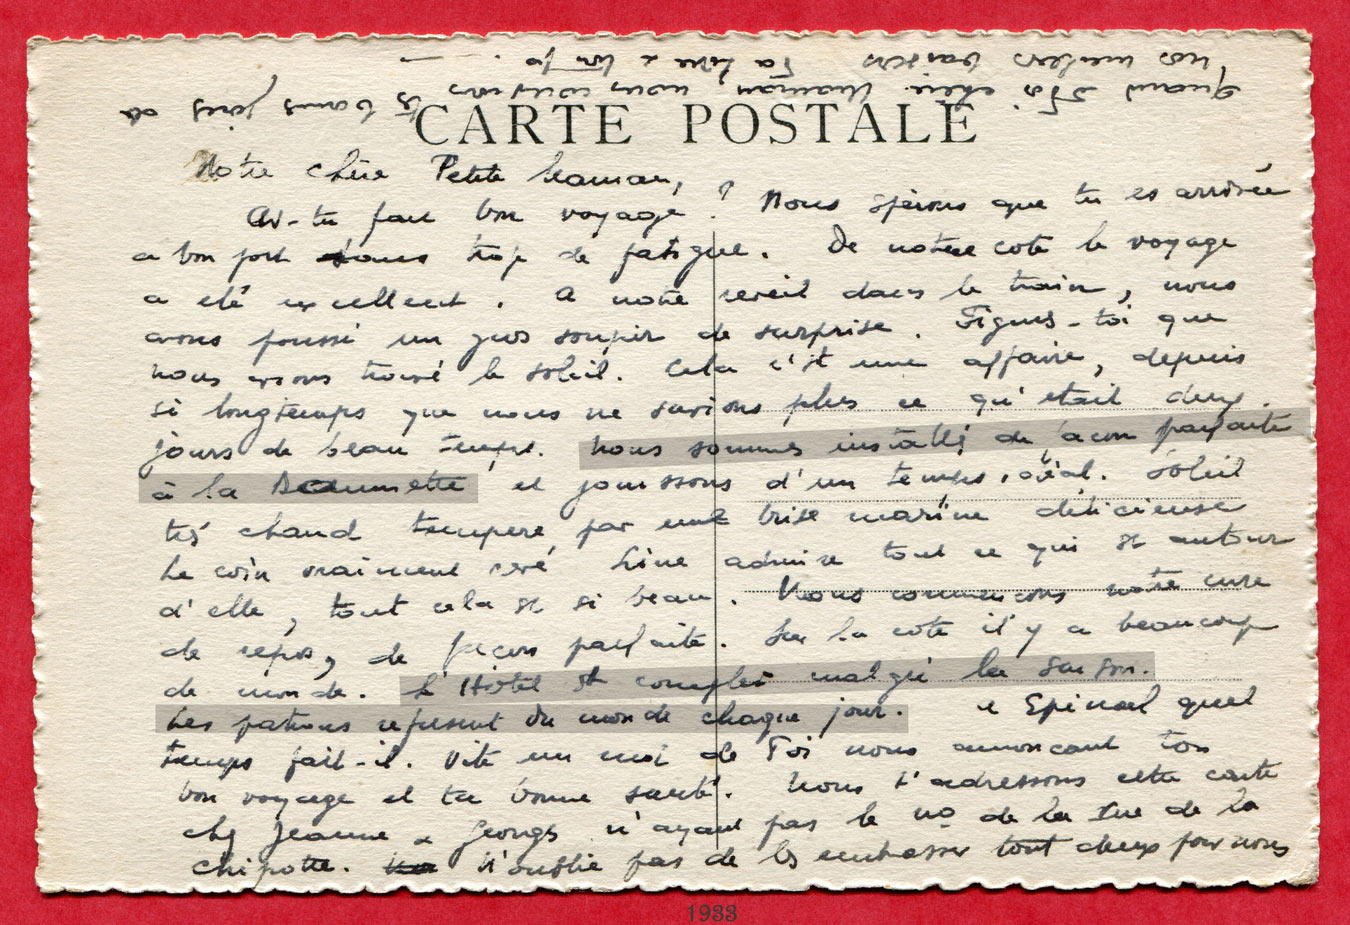 CARTE POSTALE
Notre chère Petite Maman,
As-tu fait bon voyage ? Nous spérons que tu es arrivée
a bon port sans trop de fatigue. De notre coté le voyage
a été excellent. A notre reveil dans le train, nous
avons poussé un gros soupir de surprise. Figures-toi que
nous avons trouvé le soleil. Cela c'st une affaire, depuis
si longtemps que nous ne savions plus ce qu'etait deux
jours de beau temps. Nous sommes installés de façon parfaite
à la Baumette et jouissons d'un temps idéal. Soleil
très chaud tempere par une brise marine délicieuse
Le coin vraiment revé Line admire tout ce qui st autour
d'elle, tout cela st si beau. Nous commencons notre cure
de repos, de facon parfaite. Sur la cote il y a beaucoup
de monde. L'Hôtel st complet malgré la saison.
Les patrons refusent du monde chaque jour. a Epinal quel
temps fait-il. Vite un mot de Toi nous annoncant ton
bon voyage et ta bonne santé. Nous t'adressons cette carte
chez Jeanne & Georges n'ayant pas le no de la rue de la
chipotte. N'oublie pas de les embrasser tout deux pour nous
Quand à Toi chère Maman, nous t'envoyons les bonnes joues de
nos meilleurs baisers Ta Line &
1933